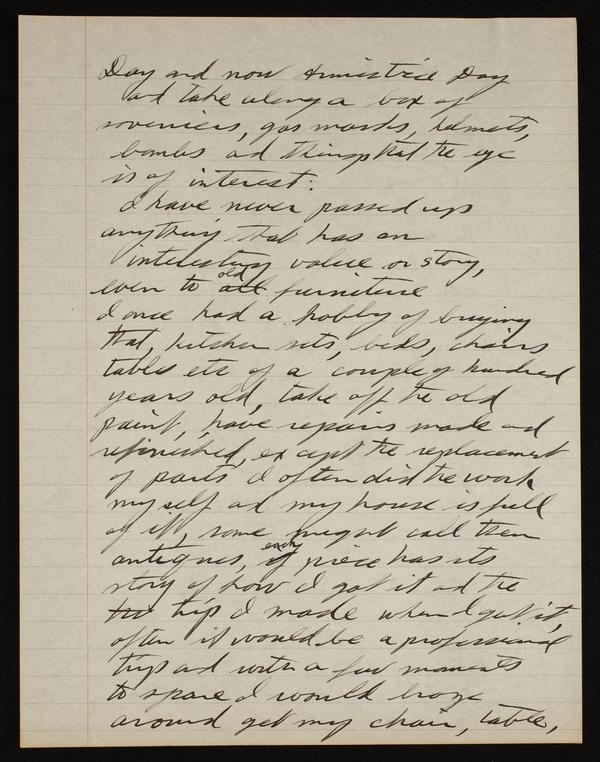 Day and now Armistice Day
and take along a box of
soveniers, gas masks, helmets,
bombs ad things that the eye
is of interest:
I have never passed up
anything that has an
interesting value or story,
even to all old furniture
I once had a hobby of buying
that, kitchen sets, beds, chairs
tables etc of a couple of hundred
years old, take off the old
paint, have repairs made and
refinished, except the replacement
of parts I often did the work
myself ad my house is full
of it, some might call them
antiques, if each piece has its
story of how I got it ad the
trip I made when I got it,
often it would be a professional
trip ad with a few moments
to spare I would
around get my chair, table,